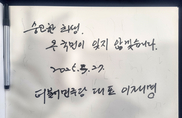 숭고한 희생,
온 국민이 잊지 않겠습니다.
2025. 3. 27.
더불어민주당 대표 이재명